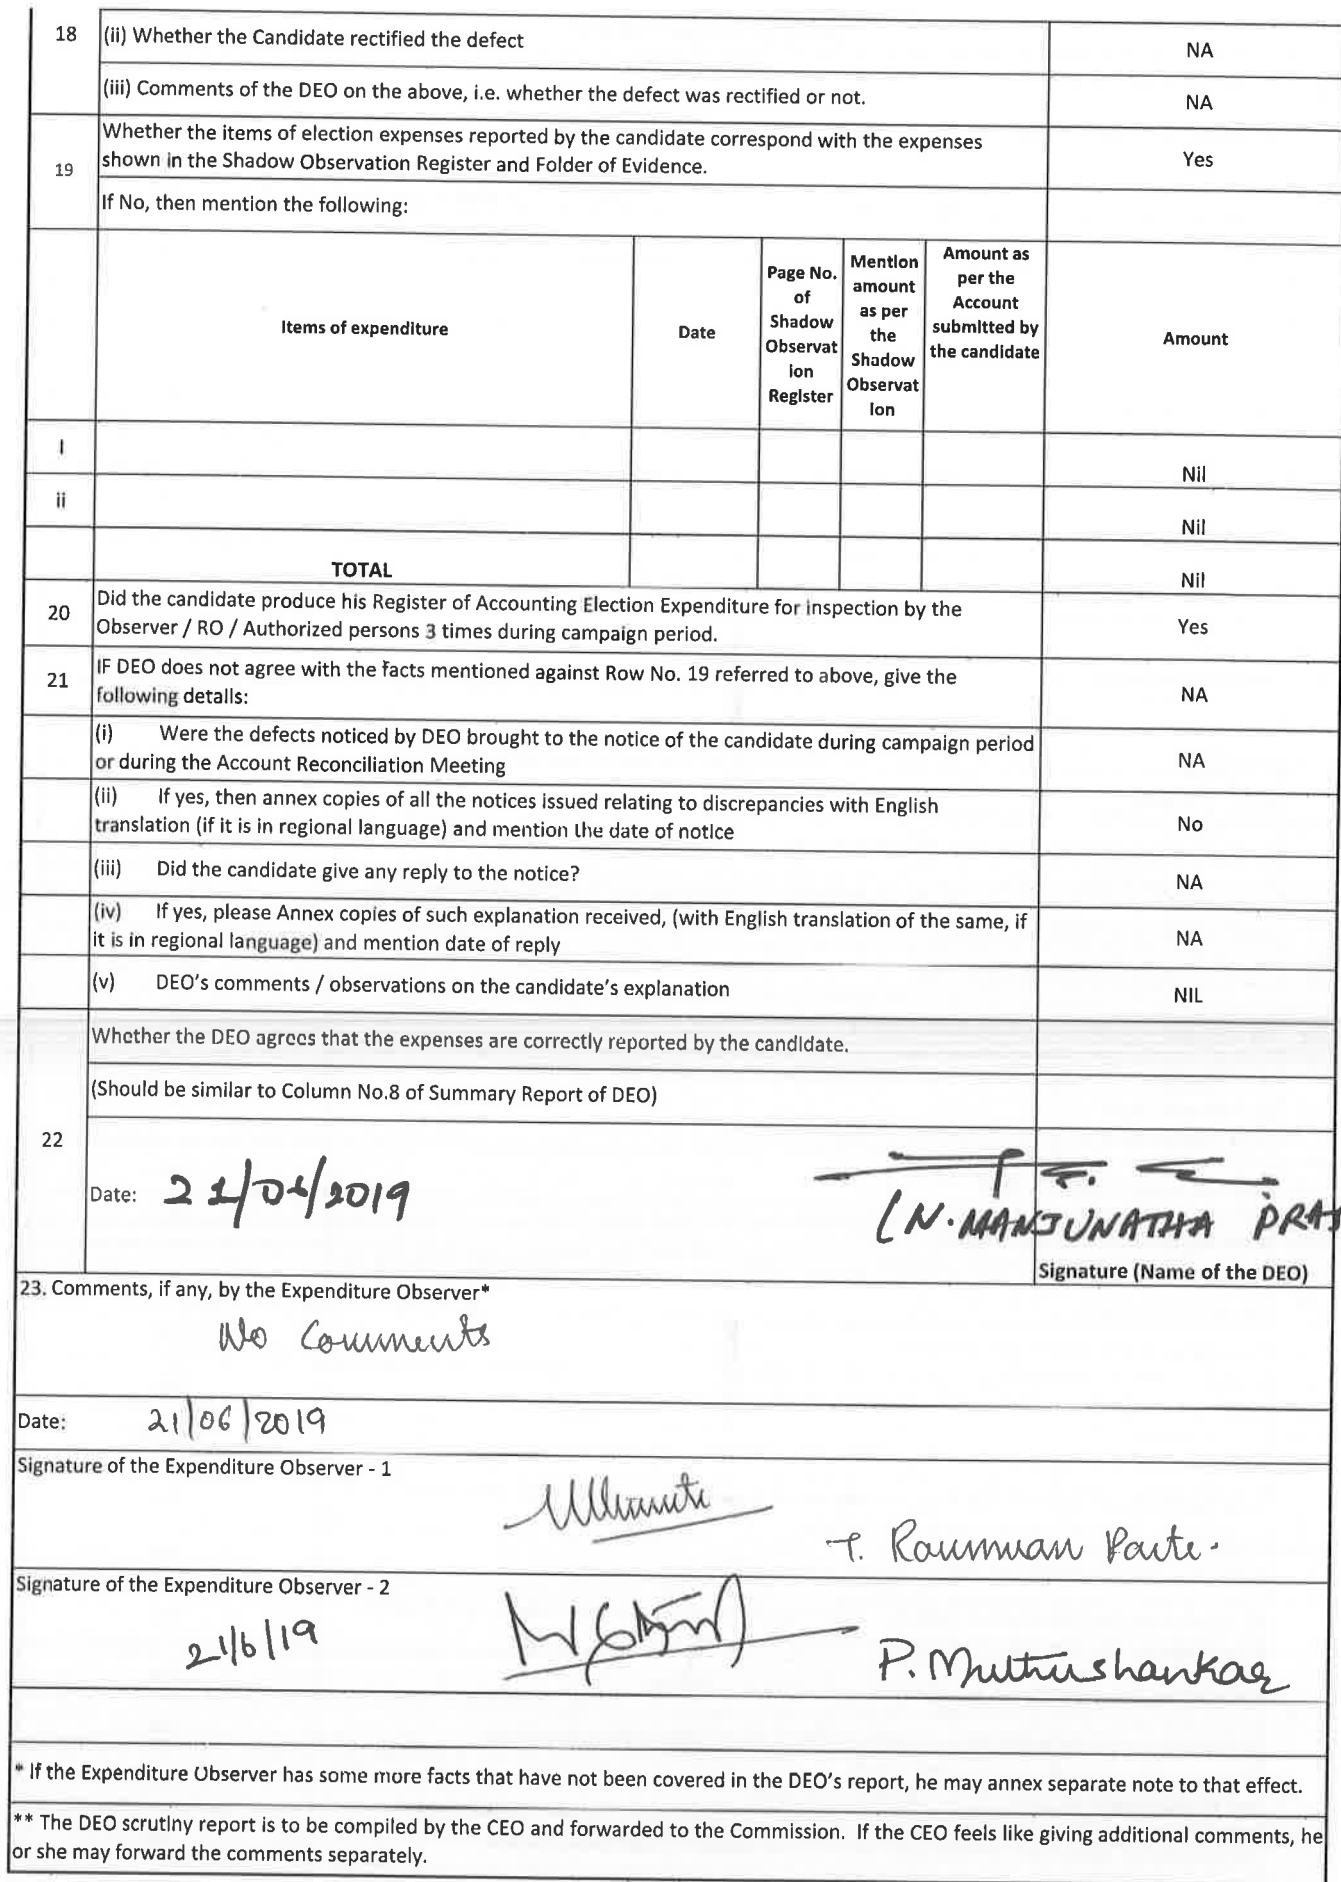 18 (ii) Whether the Candidate rectified the defect NA
(iii) Comments of the DEO on the above, i.e. whether the defect was rectified or not. NA
19 Whether the items of election expenses reported by the candidate correspond with the expenses
shown in the Shadow Observation Register and Folder of Evidence. Yes
If No, then mention the following:
Items of expenditure
Date
Page No.
of
Shadow
Observat
ion
Register
Mention
amount
as per
the
Shadow
Observat
ion
Amount as
per the
Account
submitted by
the candidate
Amount
I Nil
ii Nil
TOTAL Nil
20 Did the candidate produce his Register of Accounting Election Expenditure for inspection by the
Observer / RO / Authorized persons 3 times during campaign period. Yes
21 IF DEO does not agree with the facts mentioned against Row No. 19 referred to above, give the
following details: NA
(i) Were the defects noticed by DEO brought to the notice of the candidate during campaign period
or during the Account Reconciliation Meeting NA
(ii) If yes, then annex copies of all the notices issued relating to discrepancies with English
translation (if it is in regional language) and mention the date of notice No
(iii) Did the candidate give any reply to the notice? NA
(iv) If yes, please Annex copies of such explanation received, (with English translation of the same, if
it is in regional language) and mention date of reply NA
(v) DEO's comments / observations on the candidate's explanation NIL
Whether the DEO agrees that the expenses are correctly reported by the candidate.
(Should be similar to Column No.8 of Summary Report of DEO)
22
Date: 21/06/2019
(N. MANJUNATHA PRAS
Signature (Name of the DEO)
23. Comments, if any, by the Expenditure Observer*
No Comments
Date: 21/06/2019
Signature of the Expenditure Observer - 1
T.
Signature of the Expenditure Observer - 2
21/6/19
P. Muthushankar
* If the Expenditure Observer has some more facts that have not been covered in the DEO's report, he may annex separate note to that effect.
** The DEO scrutiny report is to be compiled by the CEO and forwarded to the Commission. If the CEO feels like giving additional comments, he
or she may forward the comments separately.